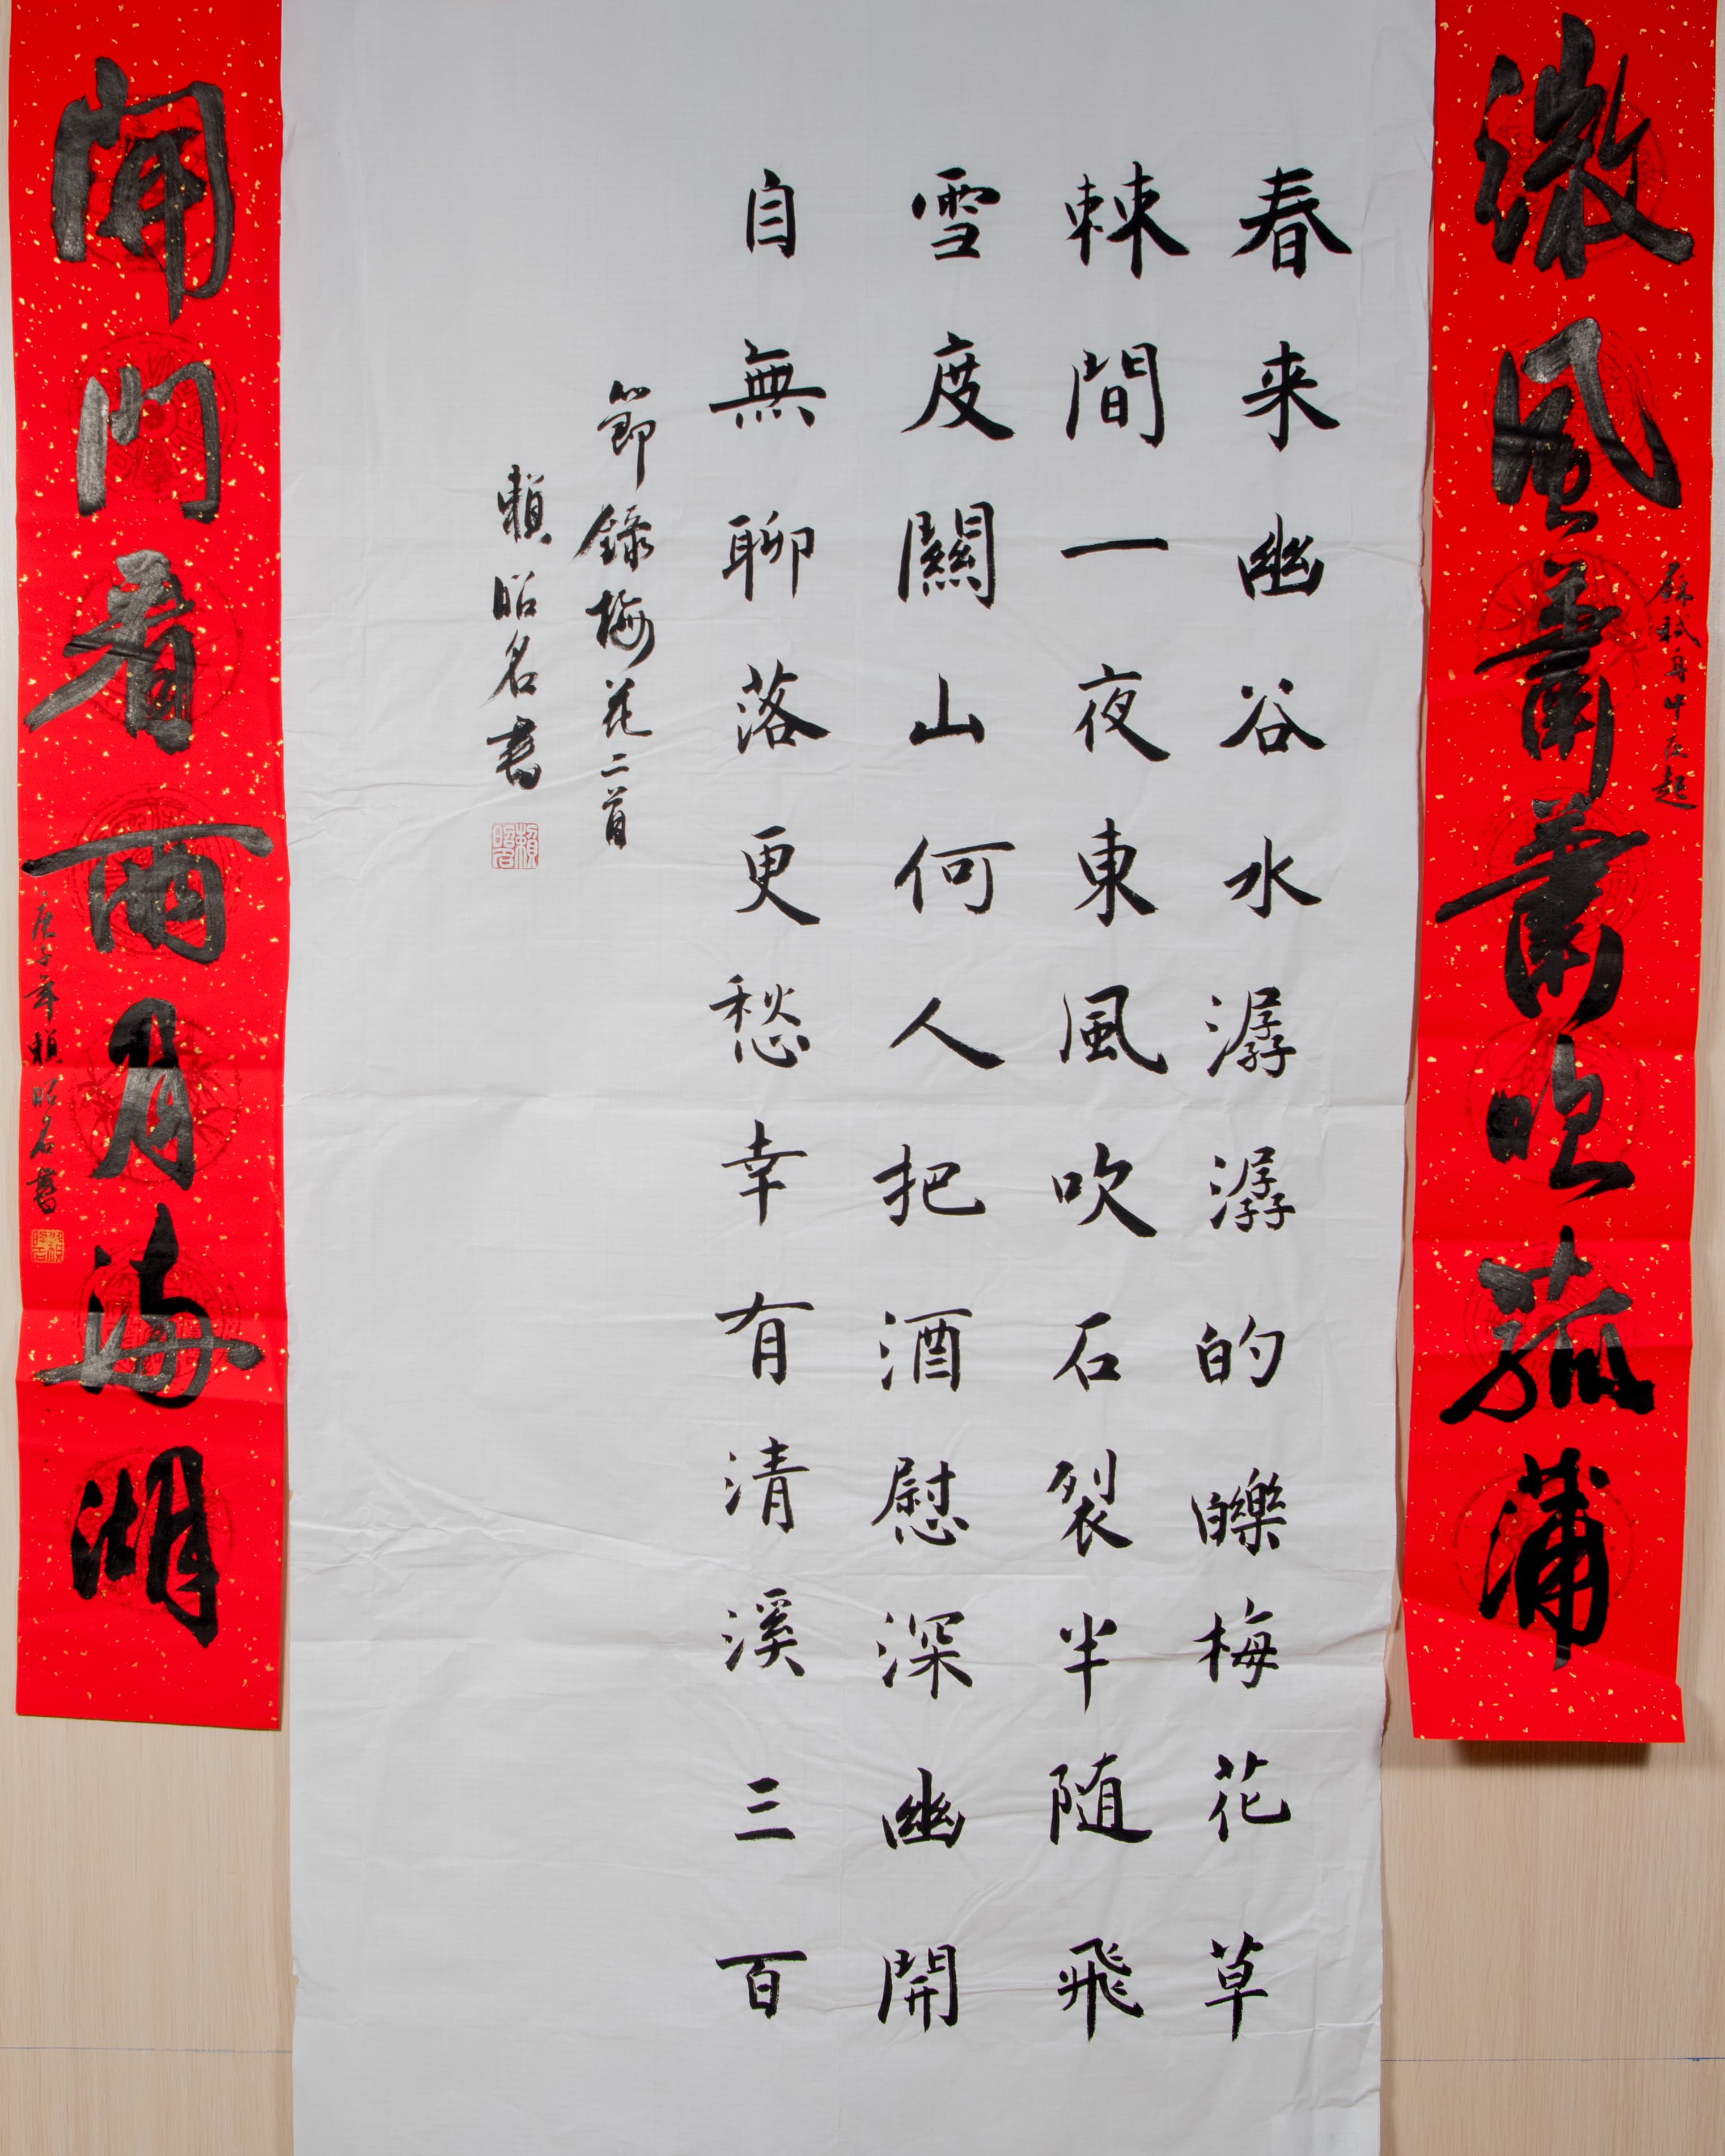 微風蕭蕭吹菰蒲
蘇軾舟中夜起
春来幽谷水潺潺的皪梅花草
棘間一夜東風吹石裂半随飛
雪度關山何人把酒慰深幽開
自無聊落更愁幸有清溪三百
節錄梅花二首
賴昭名書
賴昭名
開門看雨月滿湖
庚子年賴昭名書
賴昭名